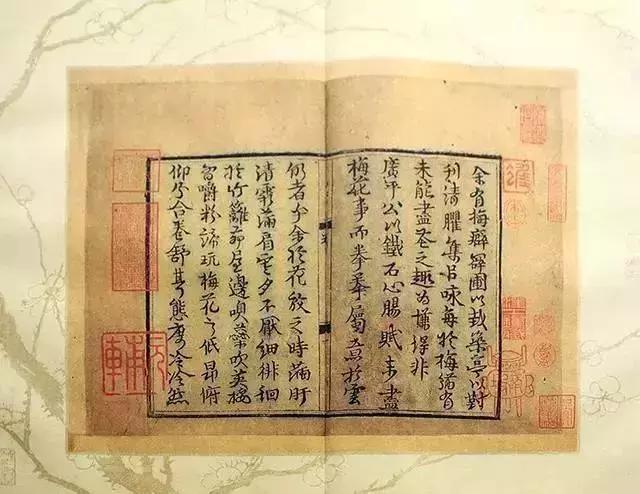 余有梅癖辟圃以栽築亭以對
刊清臞集以咏每於梅猶有
未能盡花之趣為慊得非
廣平公以鐵石心腸賦未盡
梅花事而拳拳屬意於雲
仍者乎余於花放之時滿肝
清霜滿肩寒月不厭細徘徊
於竹籬茆屋邊嗅蘂吹英挼
香嚼粉諦玩梅花之低昂俯
仰分合卷舒其態度冷冷然